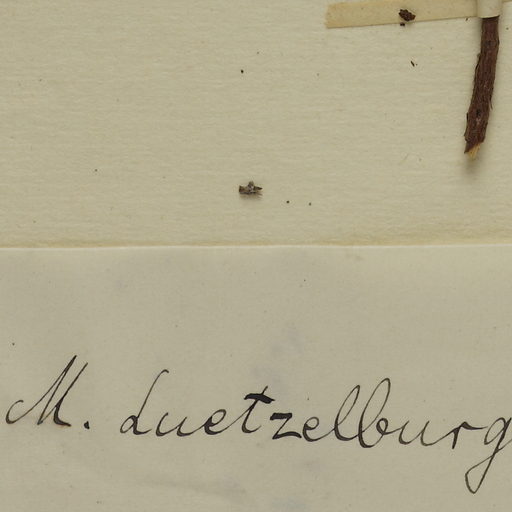 M. Luetzelburg